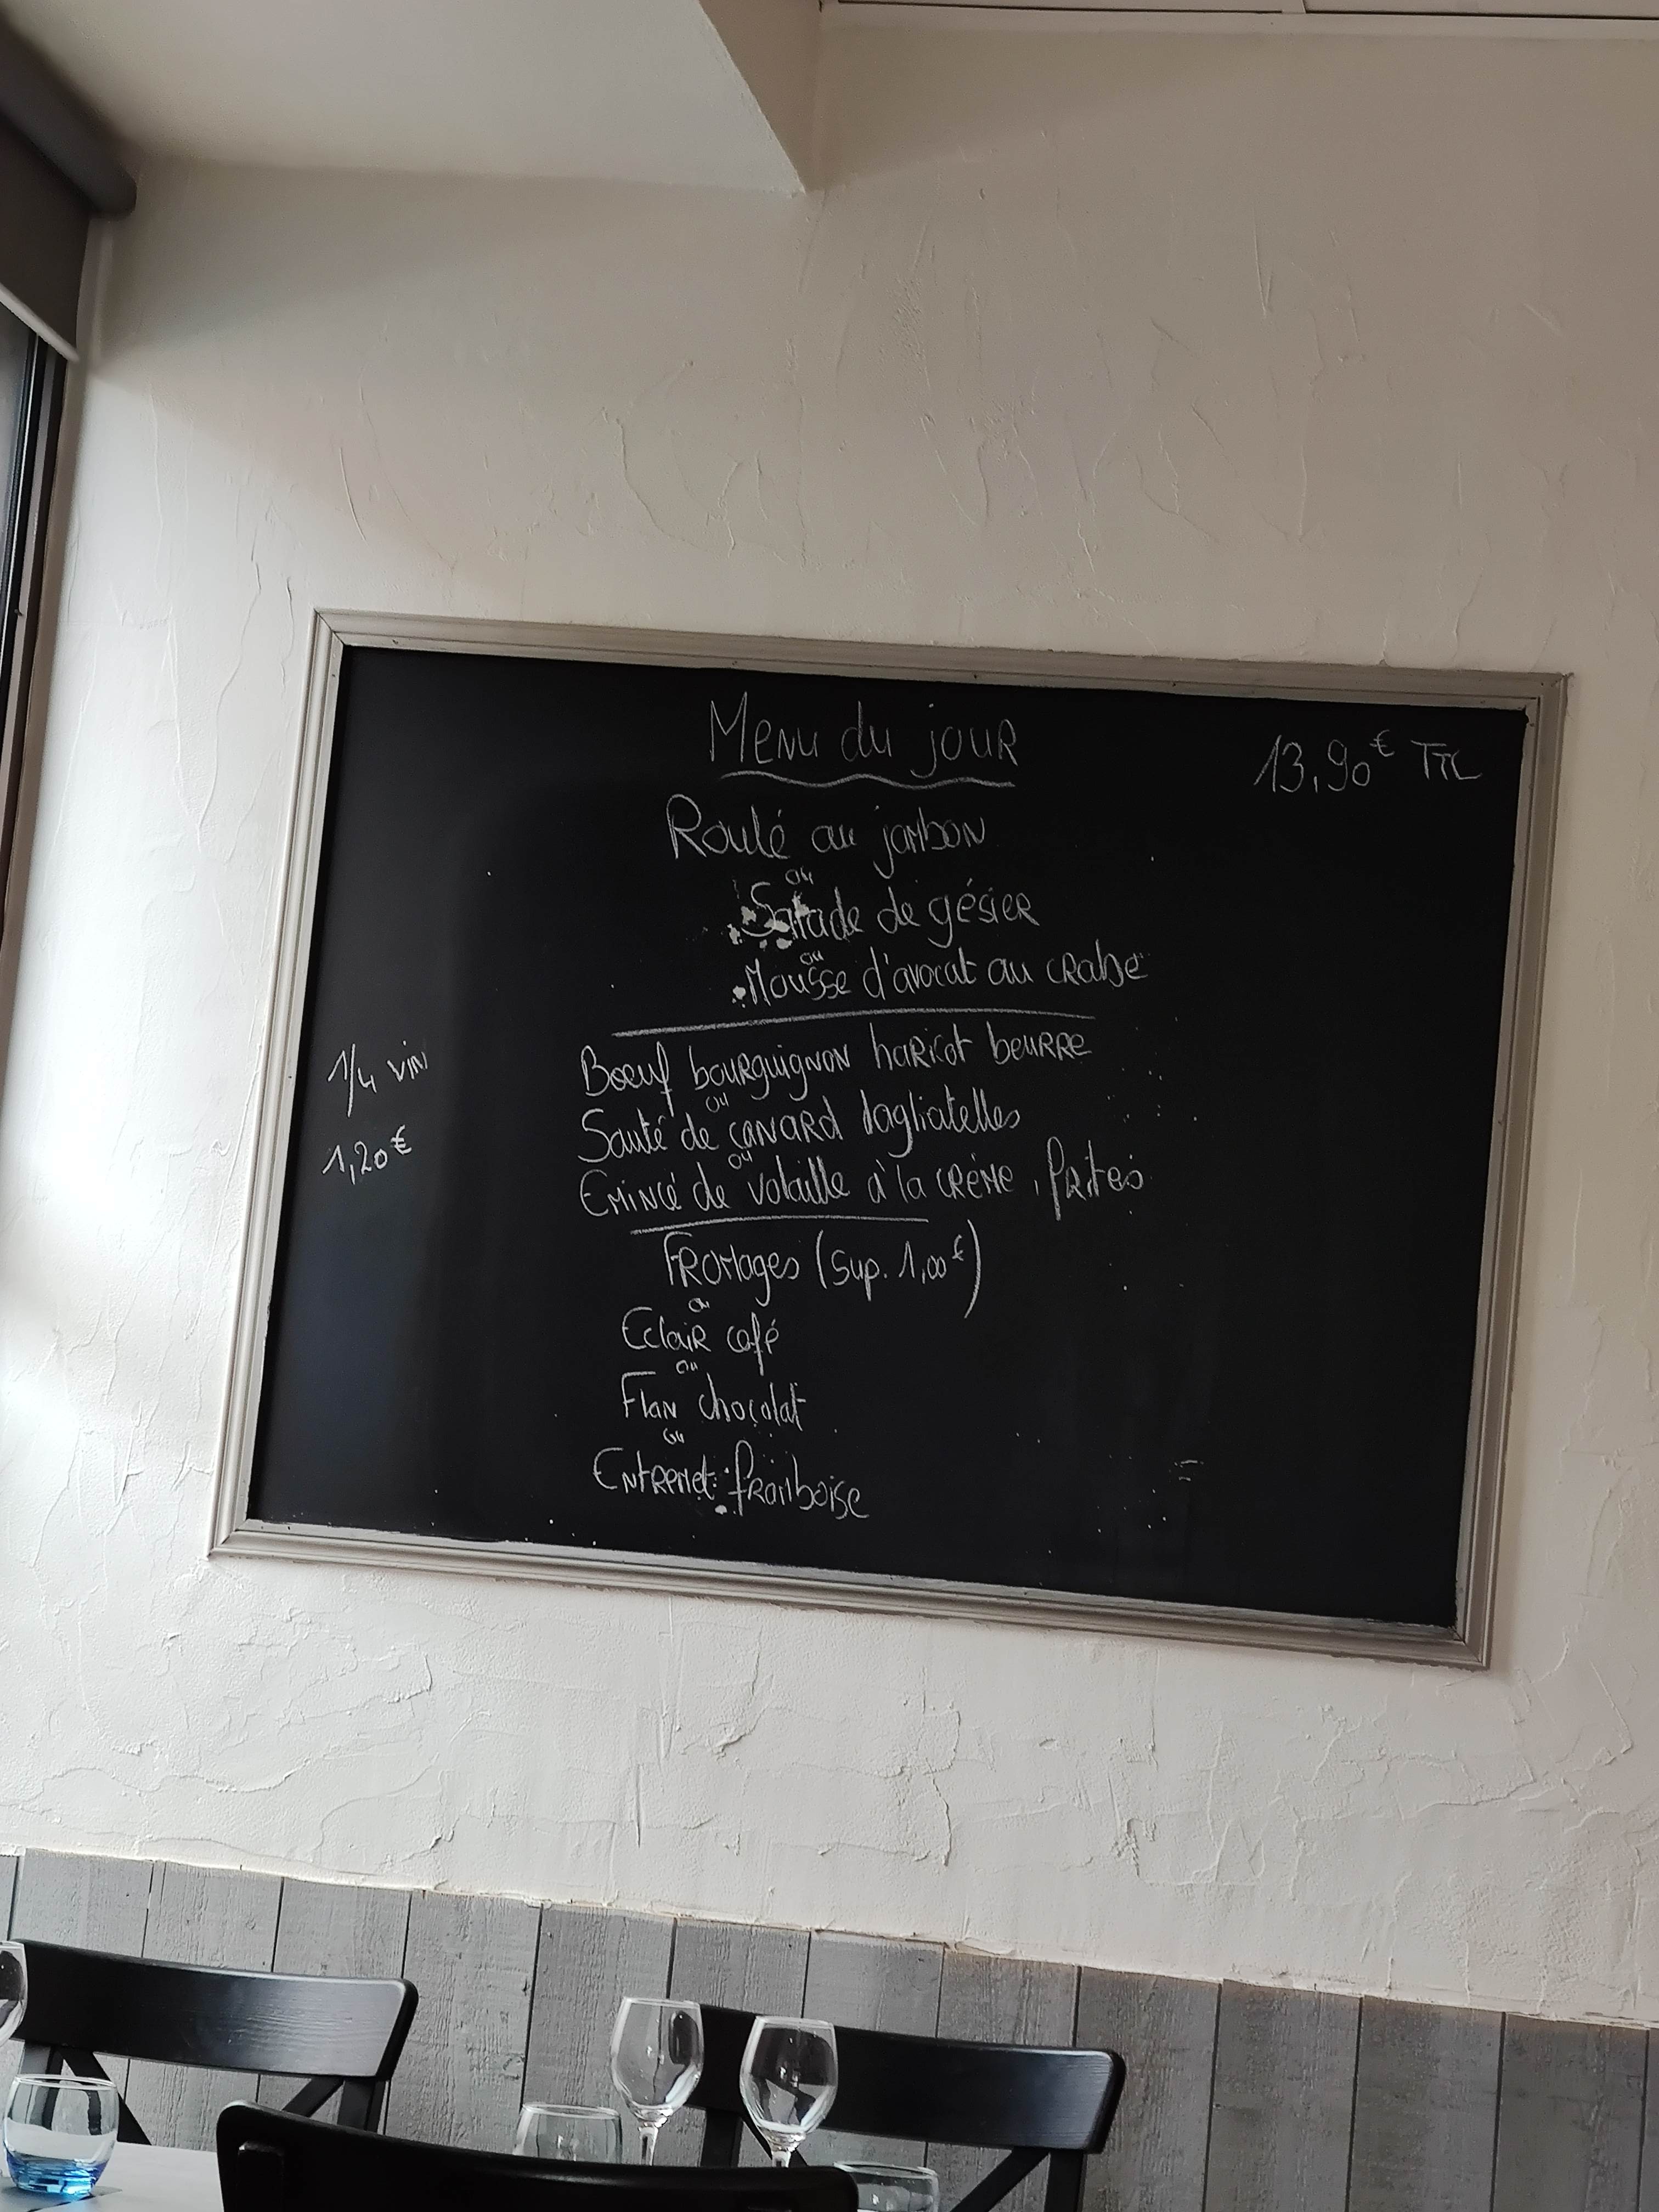 Menu du jour
13,90€ TTC
Roulé au jambon
ou
Salade de gésier
ou
Mousse d'avocat au crabe
Bœuf bourguignon haricot beurre
ou
Sauté de canard tagliatelles
ou
Emincé de volaille à la crème, frites
1/4 vin
1,20€
Fromages (sup. 1,00€)
ou
Eclair café
ou
Flan chocolat
ou
Entremet framboise